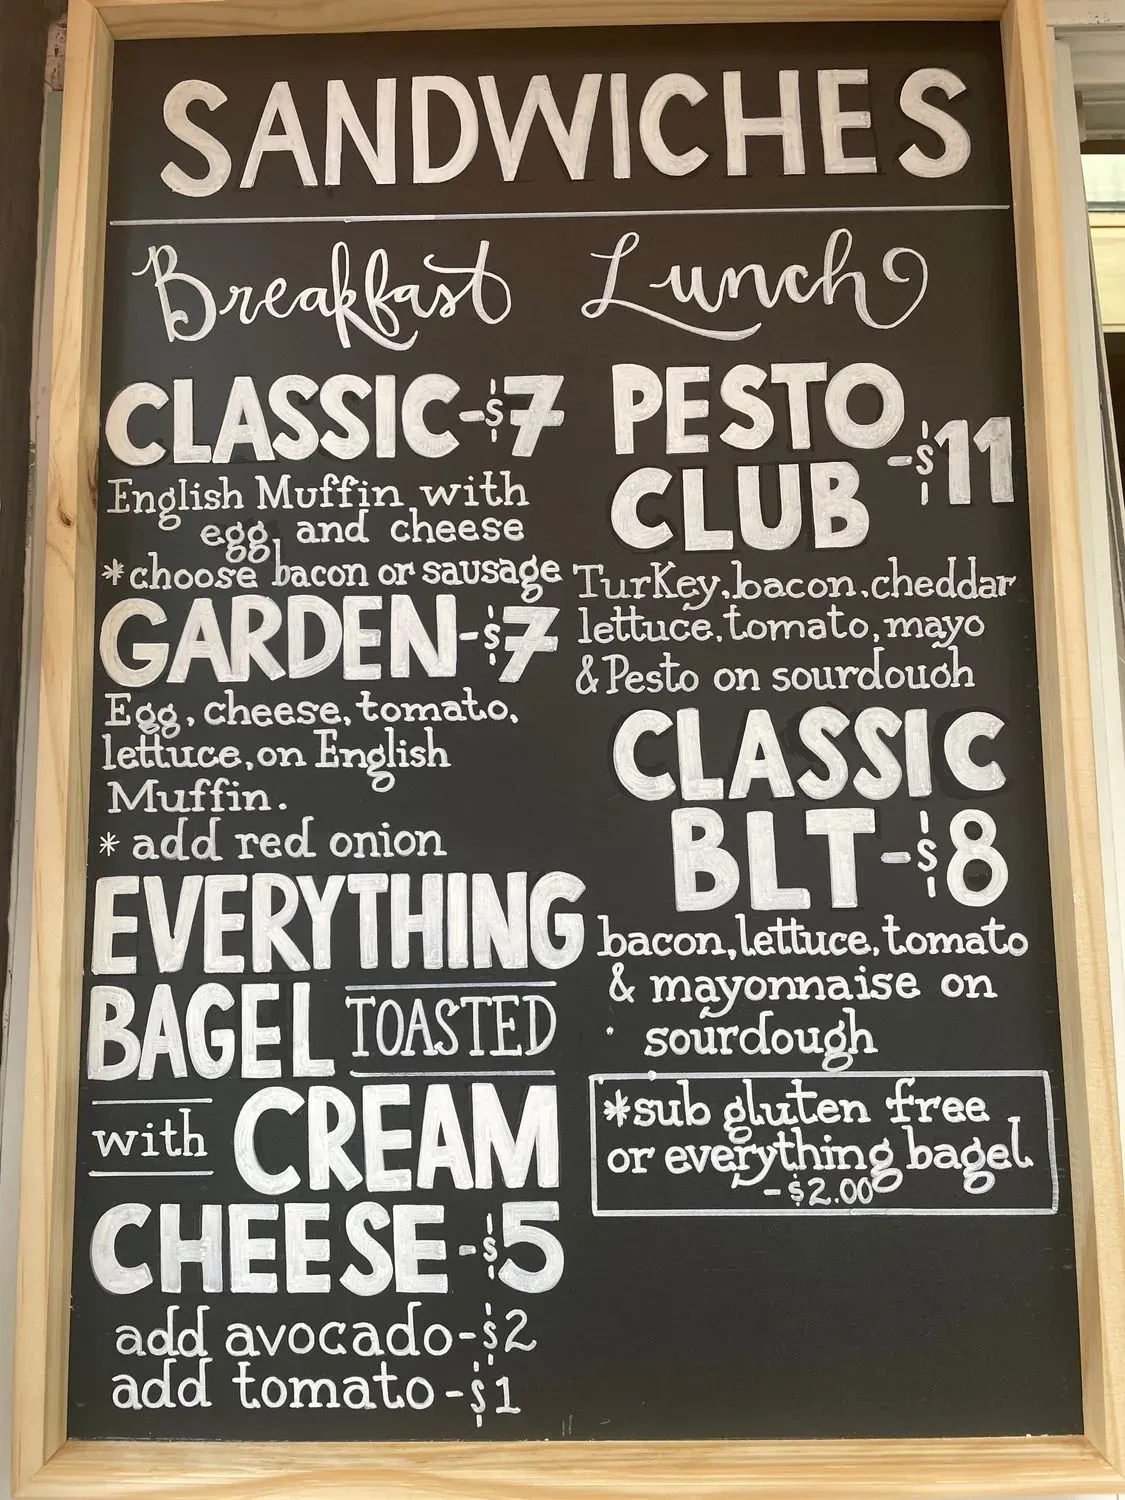 SANDWICHES
Breakfast
CLASSIC-$7
English Muffin with
egg, and cheese
*choose bacon or sausage
GARDEN-$7
Egg, cheese, tomato,
lettuce, on English
Muffin.
* add red onion
EVERYTHING
BAGEL TOASTED
with CREAM
CHEESE-$5
add avocado-$2
add tomato-$1
Lunch
PESTO
CLUB -$11
Turkey, bacon, cheddar
lettuce, tomato, mayo
& Pesto on sourdough
CLASSIC
BLT-$8
bacon, lettuce, tomato
& mayonnaise on
sourdough
*sub gluten free
or everything bagel
-$2.00